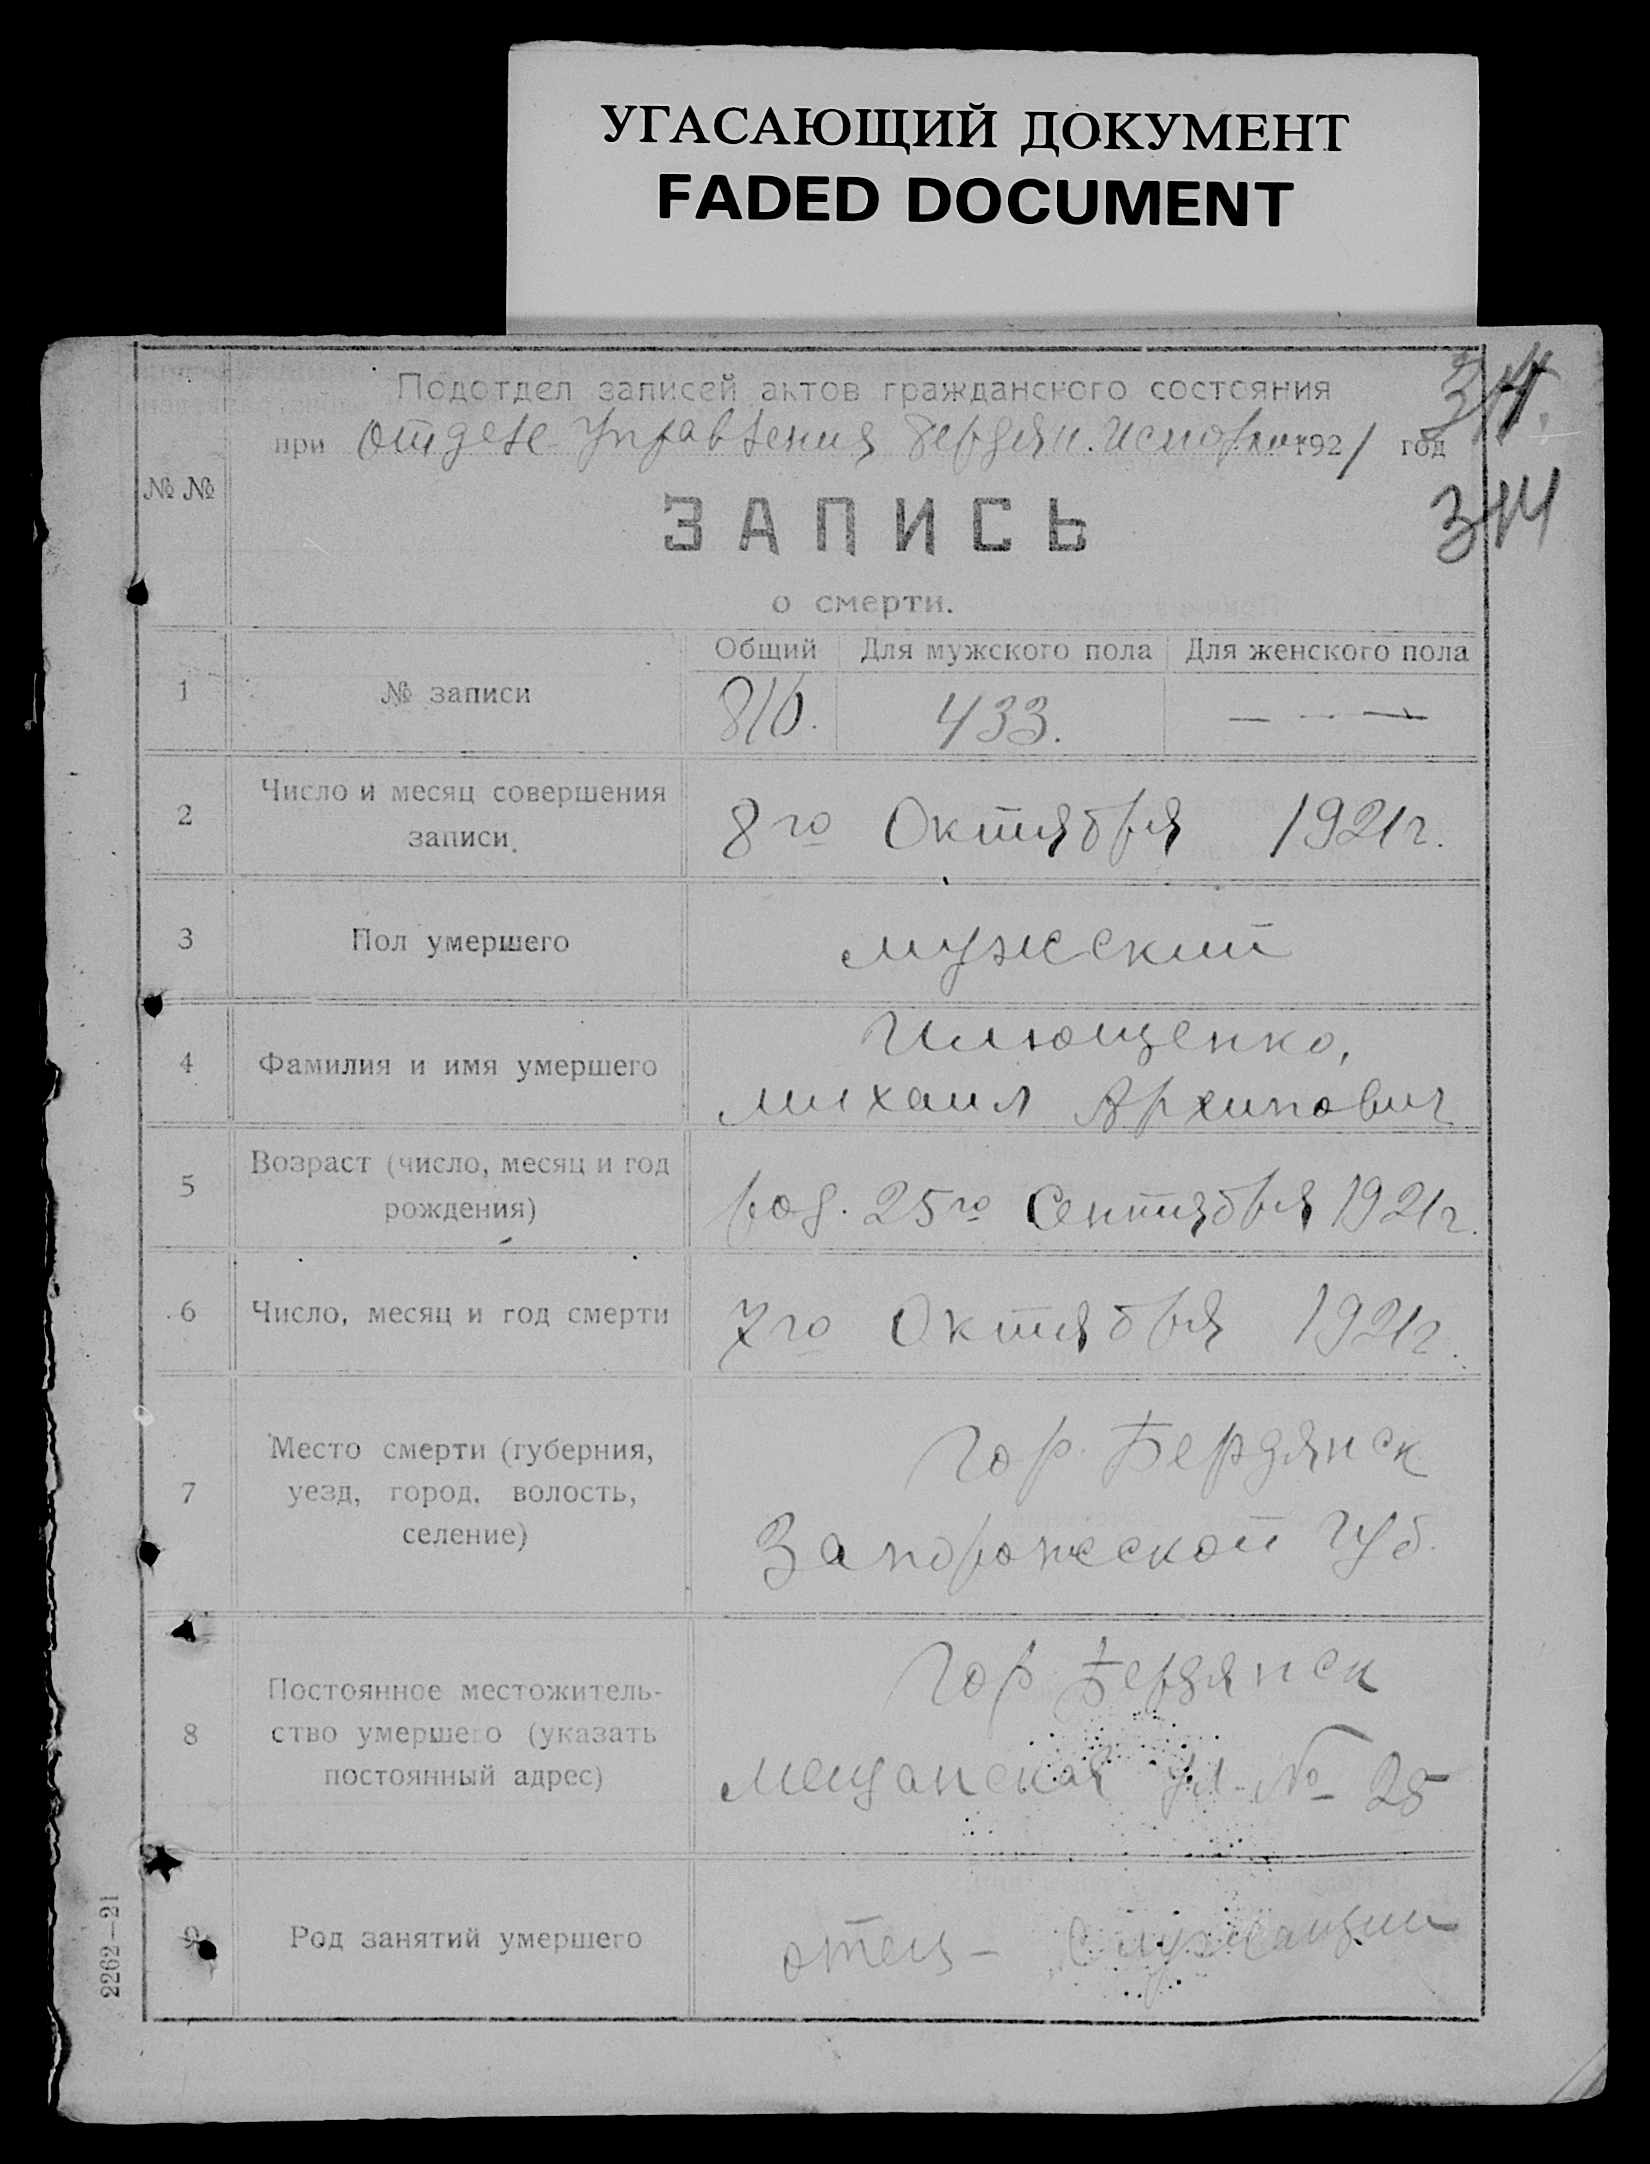 УГАСАЮЩИЙ ДОКУМЕНТ
FADED DOCUMENT
Подотдел записей актов гражданского состояния
при Отделе Управления Бердян. 1921 год
314.
314
№ №
ЗАПИСЬ
о смерти.
1 № записи
Общий Для мужского пола Для женского пола
816. 433. — - —
2 Число и месяц совершения
записи.
8го Октября 1921г.
3 Пол умершего мужской
4 Фамилия и имя умершего
Илющенко,
Михаил Архипович
5 Возраст (число, месяц и год
рождения)
род. 25го Сентября 1921г.
6 Число, месяц и год смерти 7го Октября 1921г.
7 Место смерти (губерния,
уезд, город, волость,
селение)
Гор. Бердянск
Запорожской Губ.
8 Постоянное местожитель-
ство умершего (указать
постоянный адрес)
Гор. Бердянск
Мещанская ул. № 25
9 Род занятий умершего отец – Служащий
2262—21